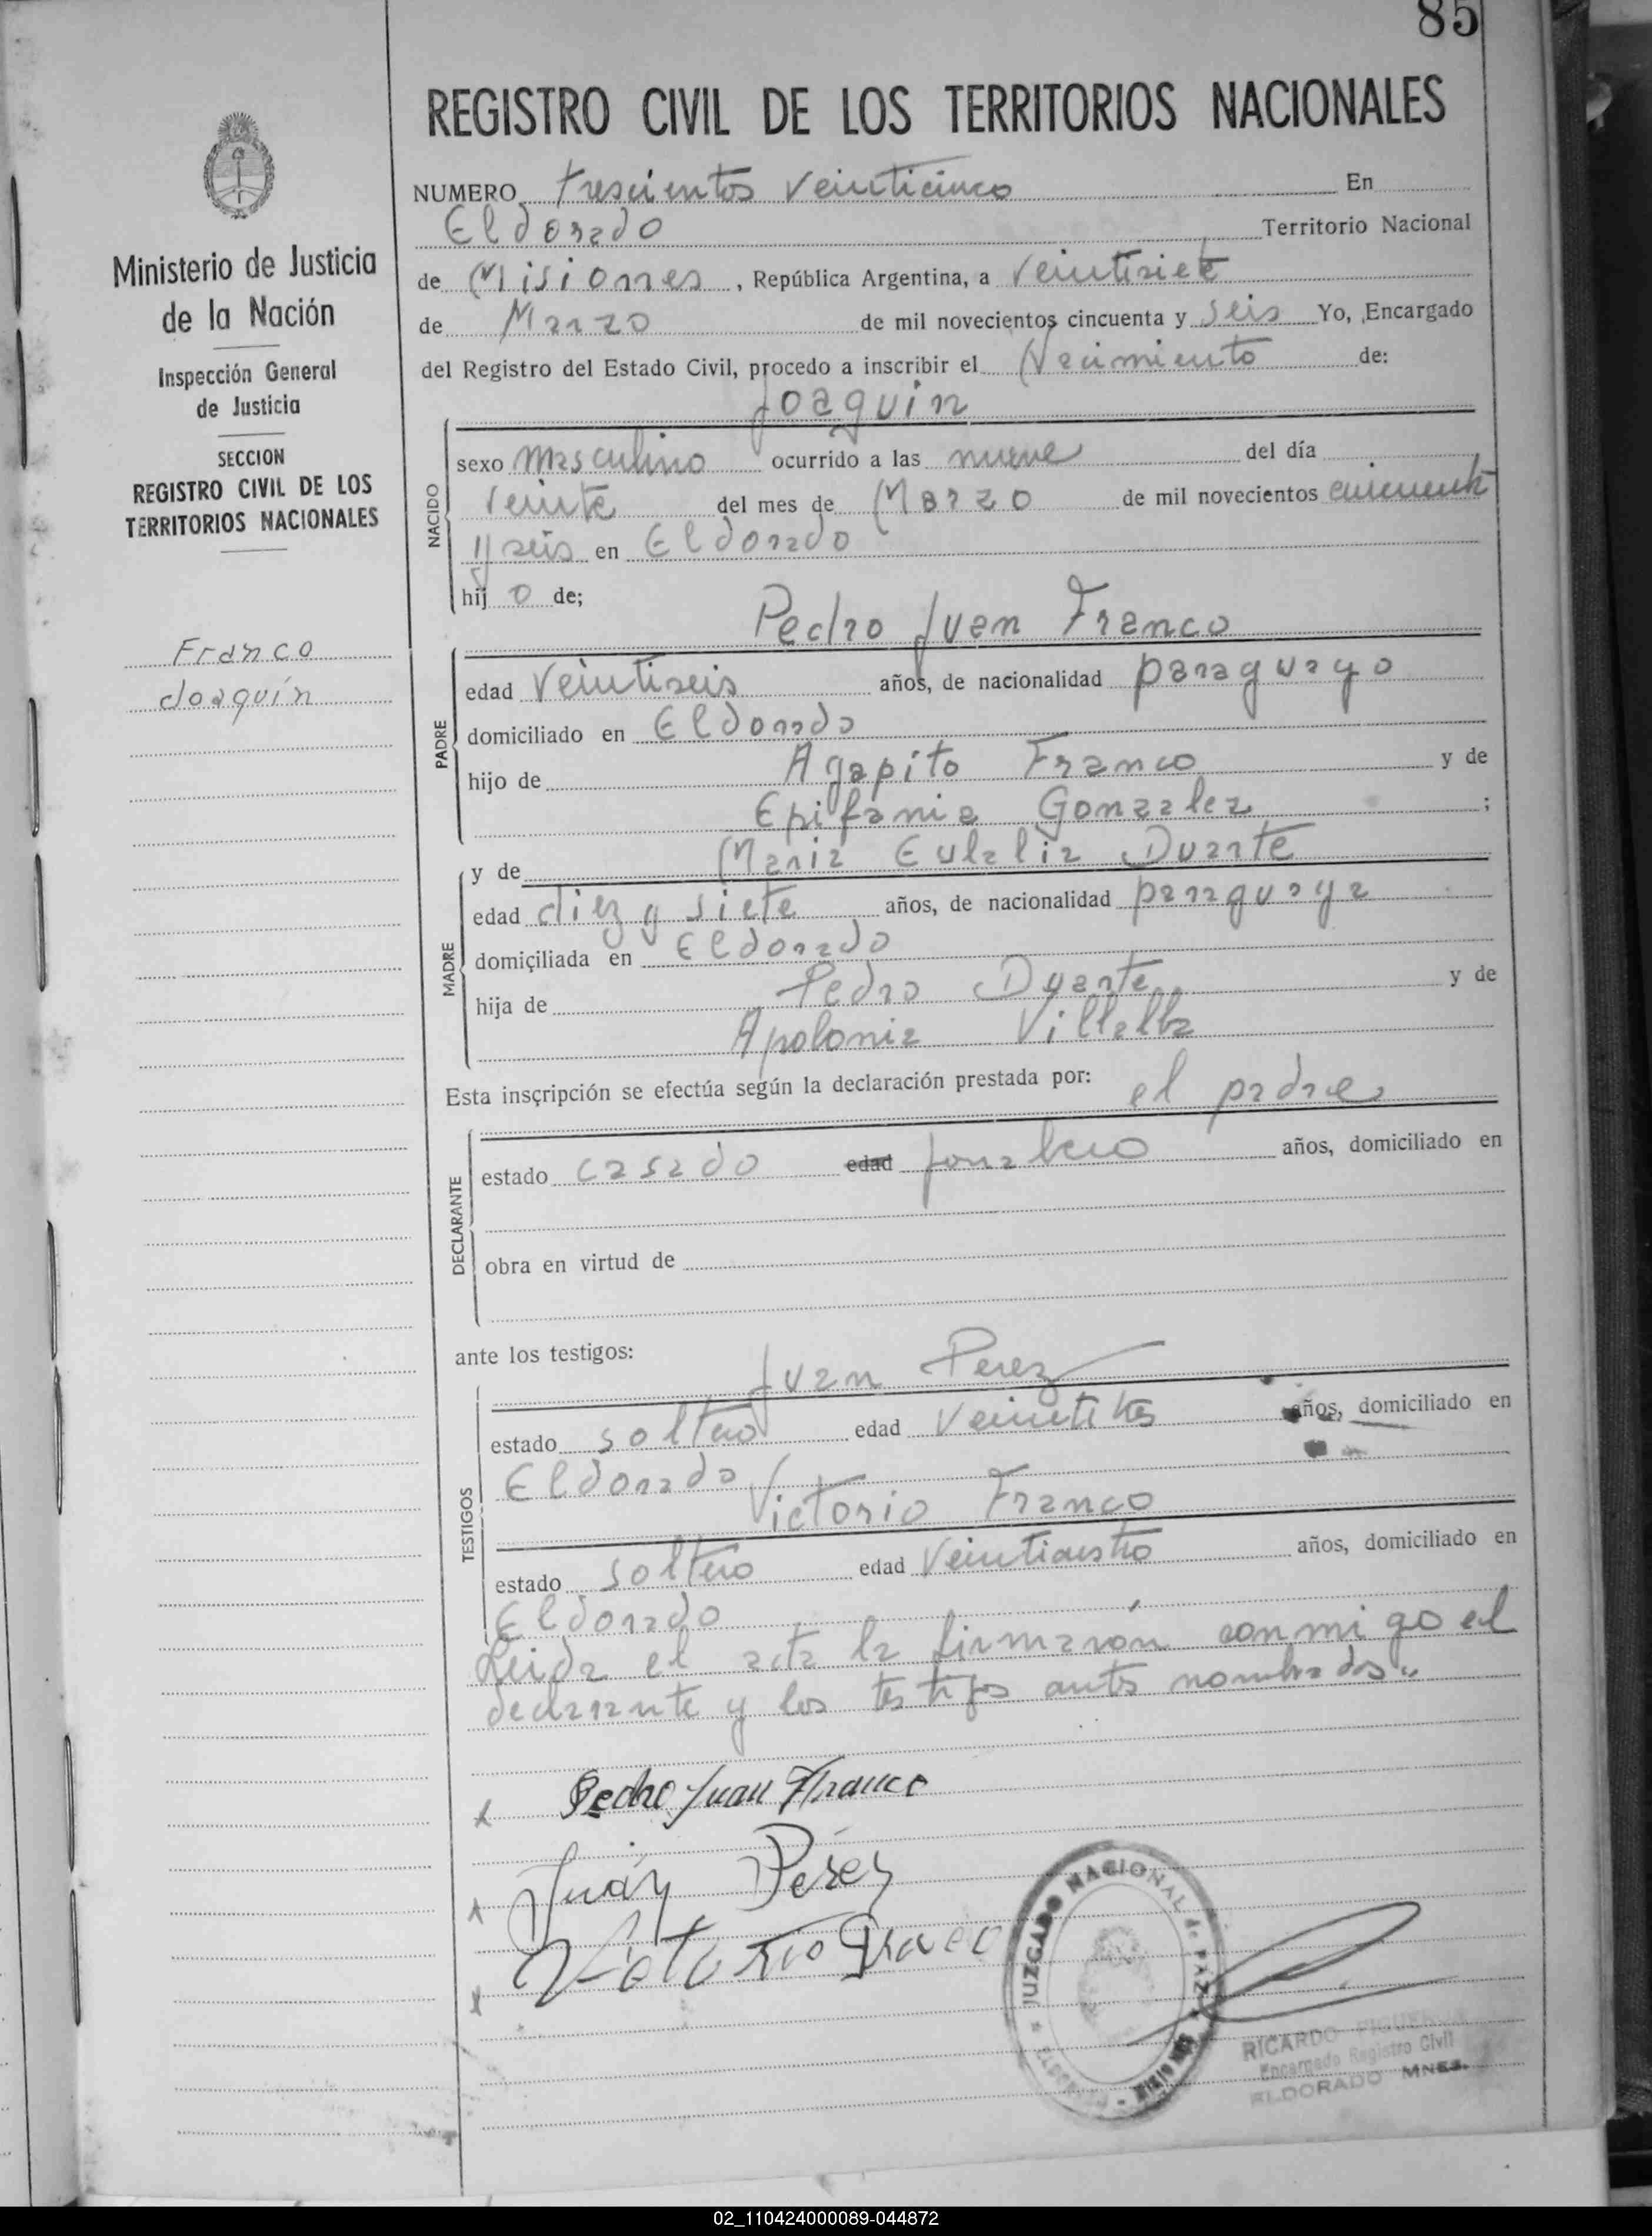 85
REGISTRO CIVIL DE LOS TERRITORIOS NACIONALES
NUMERO trescientos veinticinco En
Eldorado Territorio Nacional
de Misiones, República Argentina, a veintisiete
de Marzo de mil novecientos cincuenta y seis Yo, Encargado
del Registro del Estado Civil, procedo a inscribir el Nacimiento de:
Joaquin
NACIDO
sexo masculino ocurrido a las nueve del día
veinte del mes de Marzo de mil novecientos cincuenta
y seis en Eldorado
hijo de;
Pedro Juan Franco
PADRE
edad Veintiseis años, de nacionalidad paraguayo
domiciliado en Eldorado
hijo de Agapito Franco y de
Epifania Gonzalez ;
y de Maria Eulalia Duarte
MADRE
edad diez y siete años, de nacionalidad paraguaya
domiciliada en Eldorado
hija de Pedro Duarte y de
Apolonia Villalba
Esta inscripción se efectúa según la declaración prestada por: el padre
DECLARANTE
estado casado edad jornalero años, domiciliado en
obra en virtud de
ante los testigos:
Juan Perez
TESTIGOS
estado soltero edad veintitres años, domiciliado en
Eldorado
Victorio Franco
estado soltero edad Veinticuatro años, domiciliado en
Eldorado
Leida el acta la firmarón conmigo el
declarante y los testigos antes nombrados..
x Pedro Juan Franco
x Juán Pérez
x Victorio Franco
JUZGADO NACIONAL de PAZ
RICARDO
Encargado Registro Civil
ELDORADO MNES.
Ministerio de Justicia
de la Nación
Inspección General
de Justicia
SECCION
REGISTRO CIVIL DE LOS
TERRITORIOS NACIONALES
Franco
Joaquín
02_110424000089-044872